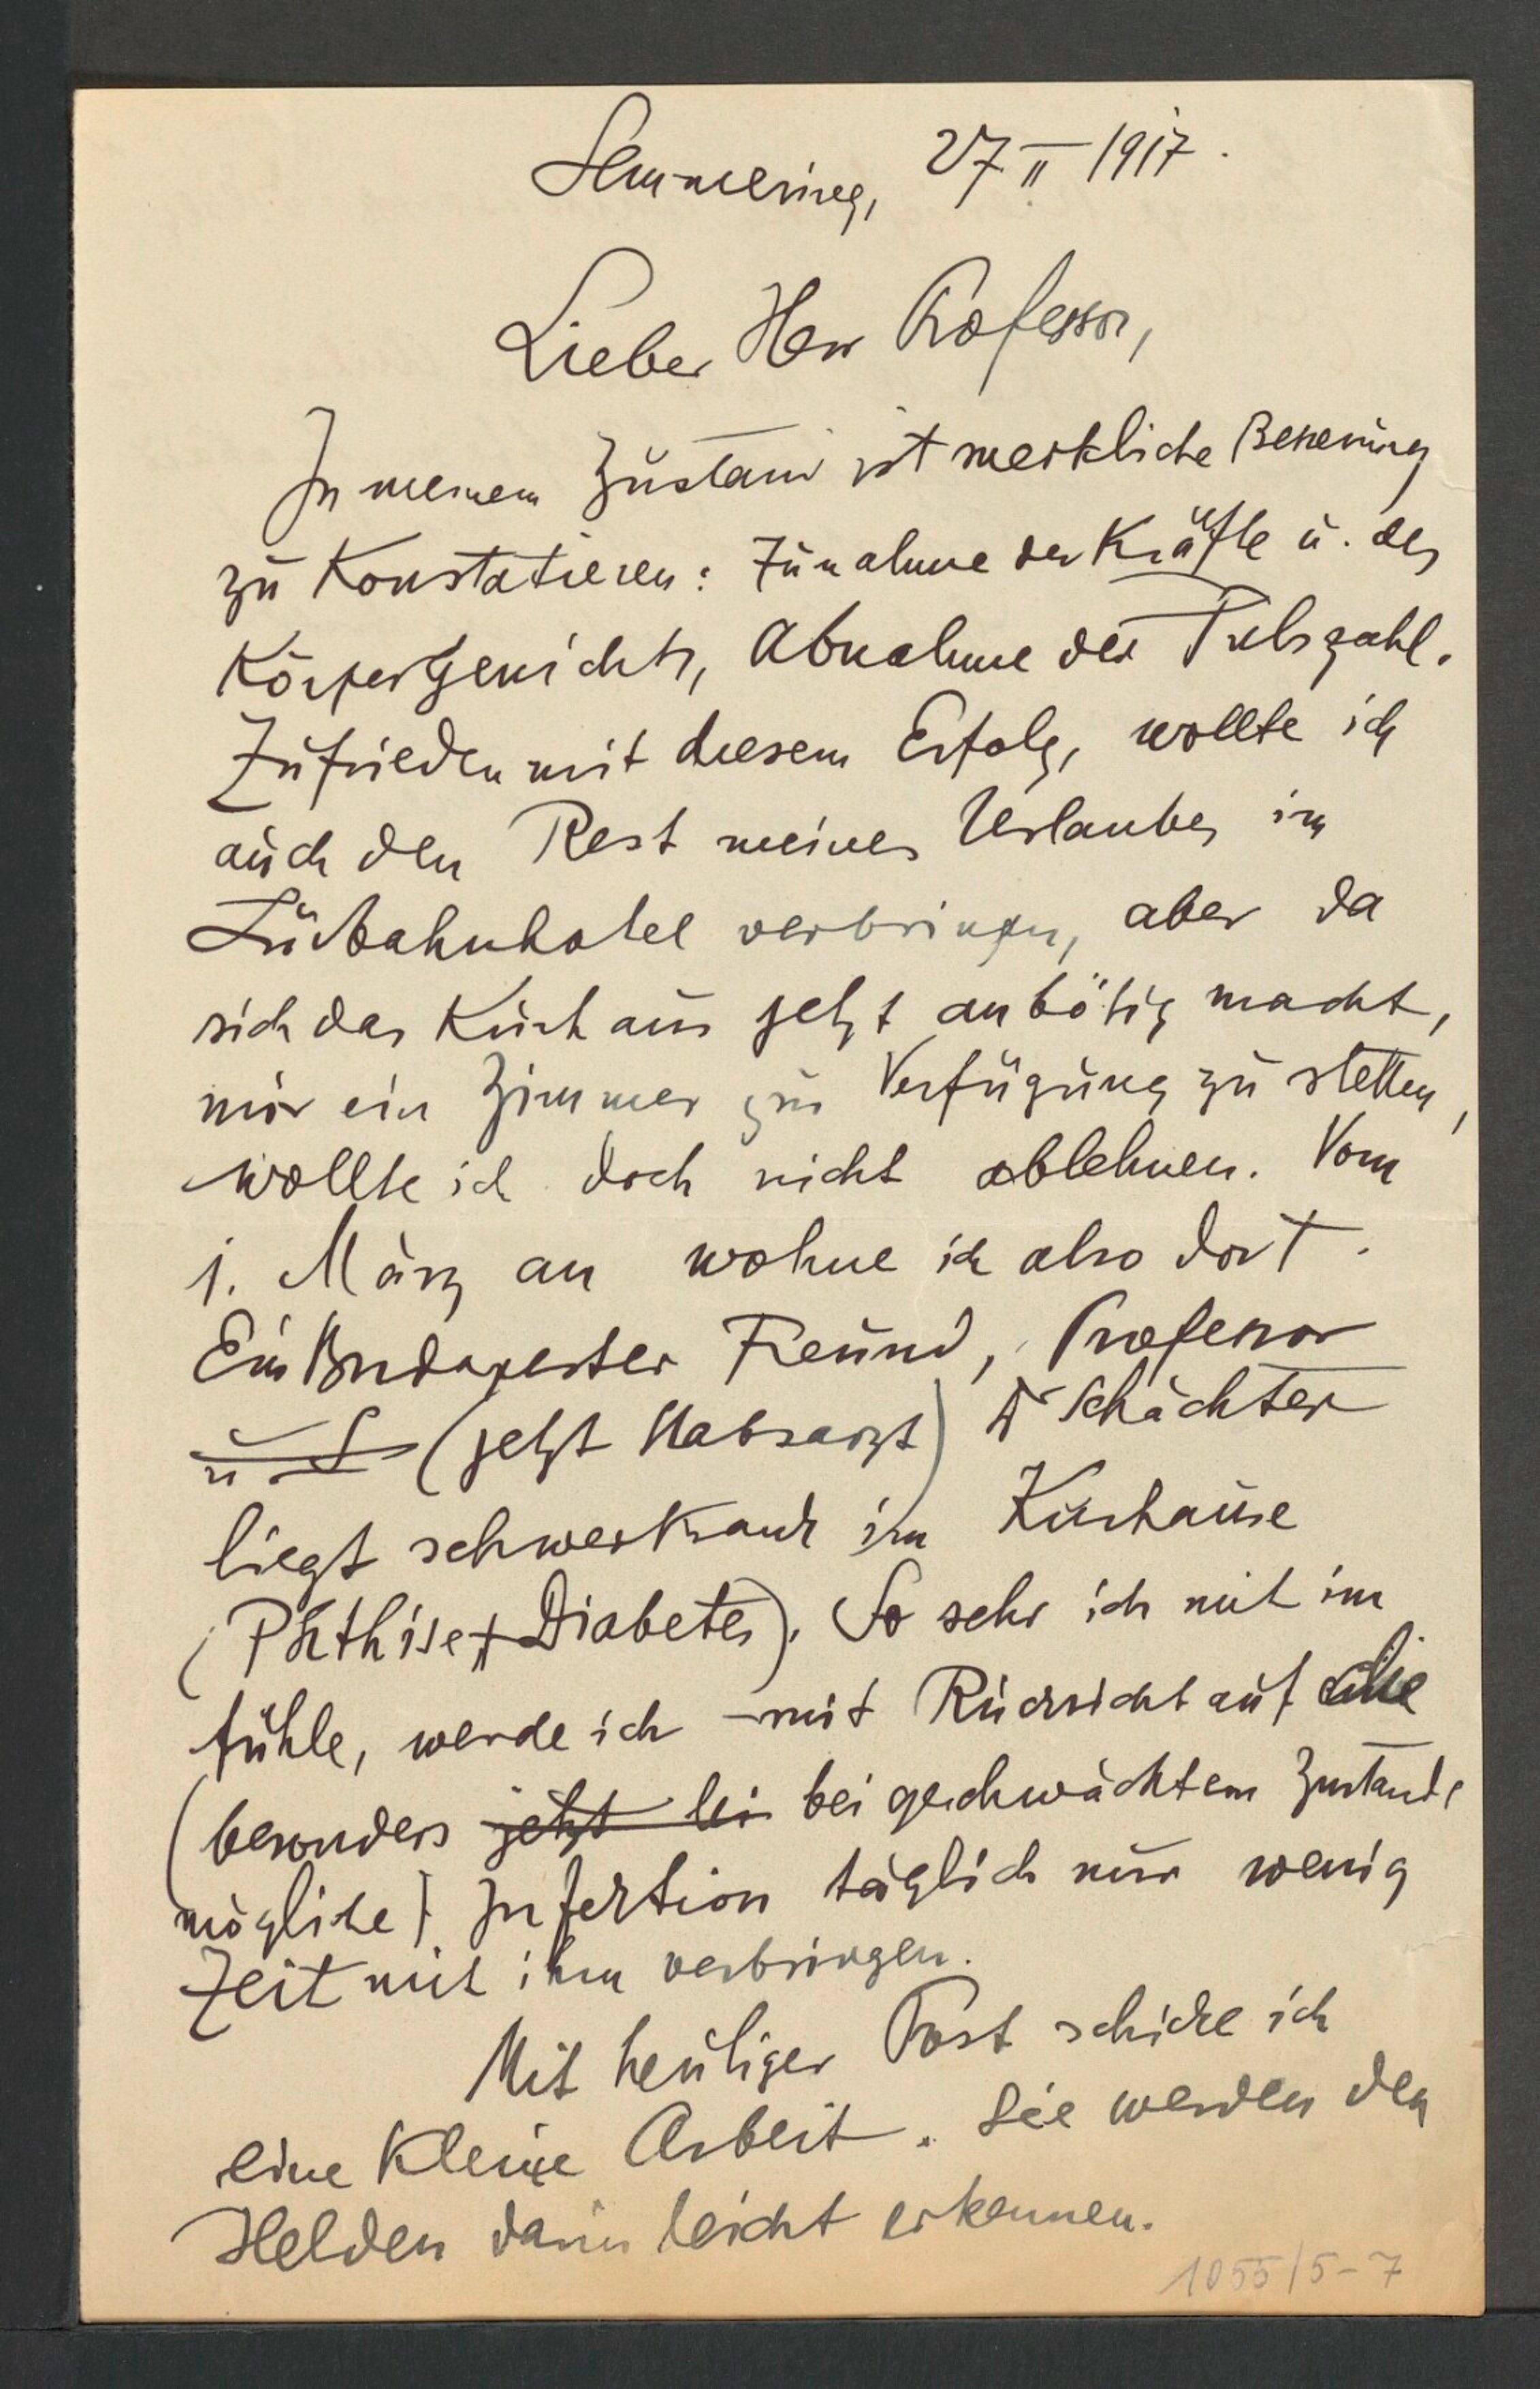 Semmering, 27 II 1917.
Lieber Herr Professor,
In meinem Zustand ist merkliche Besserung
zu Konstatieren: Zunahme der Kräfte u. des
Körpergewichts, Abnahme der Pulszahl.
Zufrieden mit diesem Erfolg, wollte ich
auch den Rest meines Urlaubes im
Südbahnhotel verbringen, aber da
sich das Kurhaus jetzt anbötig macht,
mir ein Zimmer zur Verfügung zu stellen,
wollte ich doch nicht ablehnen. Vom
1. März an wohne ich also dort.
Ein Budapester Freund, Professor
(jetzt Stabsarzt) Dr Schächter
liegt schwerkrank im Kurhause
(Phthise + Diabetes). So sehr ich mit ihm
fühle, werde ich – mit Rücksicht auf die
(besonders jetzt bei bei geschwächtem Zustande
mögliche) Infektion täglich nur wenig
Zeit mit ihm verbringen.
Mit heutiger Post schicke ich
eine Kleine Arbeit. Sie werden den
Helden darin leicht erkennen.
1055/5-7